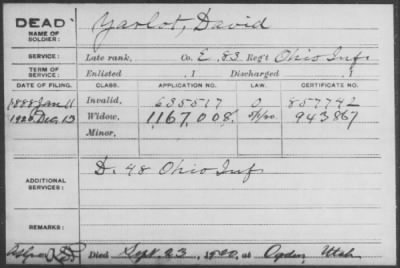 DEAD
NAME OF SOLDIER:
Yarlot, David
SERVICE: Late rank, Co. E. 83 Reg't Ohio Inf.
TERM OF SERVICE: Enlisted , 1 Discharged , 1
DATE OF FILING. CLASS. APPLICATION NO. LAW. CERTIFICATE NO.
1888 Jan 11 Invalid, 635517 O 857742
1920 Dec, 13 Widow, 1,167,008, 943867
Minor,
ADDITIONAL SERVICES: D. 48 Ohio Inf
REMARKS:
Died Sept. 23, 1920, at Ogden, Utah